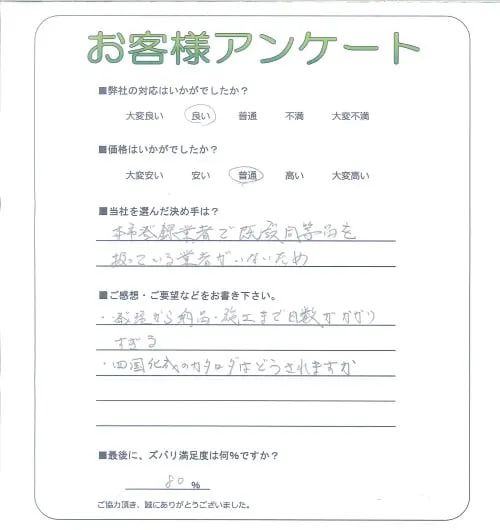 お客様アンケート
■弊社の対応はいかがでしたか？
大変良い 良い 普通 不満 大変不満
■価格はいかがでしたか？
大変安い 安い 普通 高い 大変高い
■当社を選んだ決め手は？
本市登録業者で既設同等品を
扱っている業者がいないため
■ご感想・ご要望などをお書き下さい。
・から納品・施工まで日数がかかり
すぎる
・四国化成のカタログはどうされますか
■最後に、ズバリ満足度は何%ですか？
80 %
ご協力頂き、誠にありがとうございました。